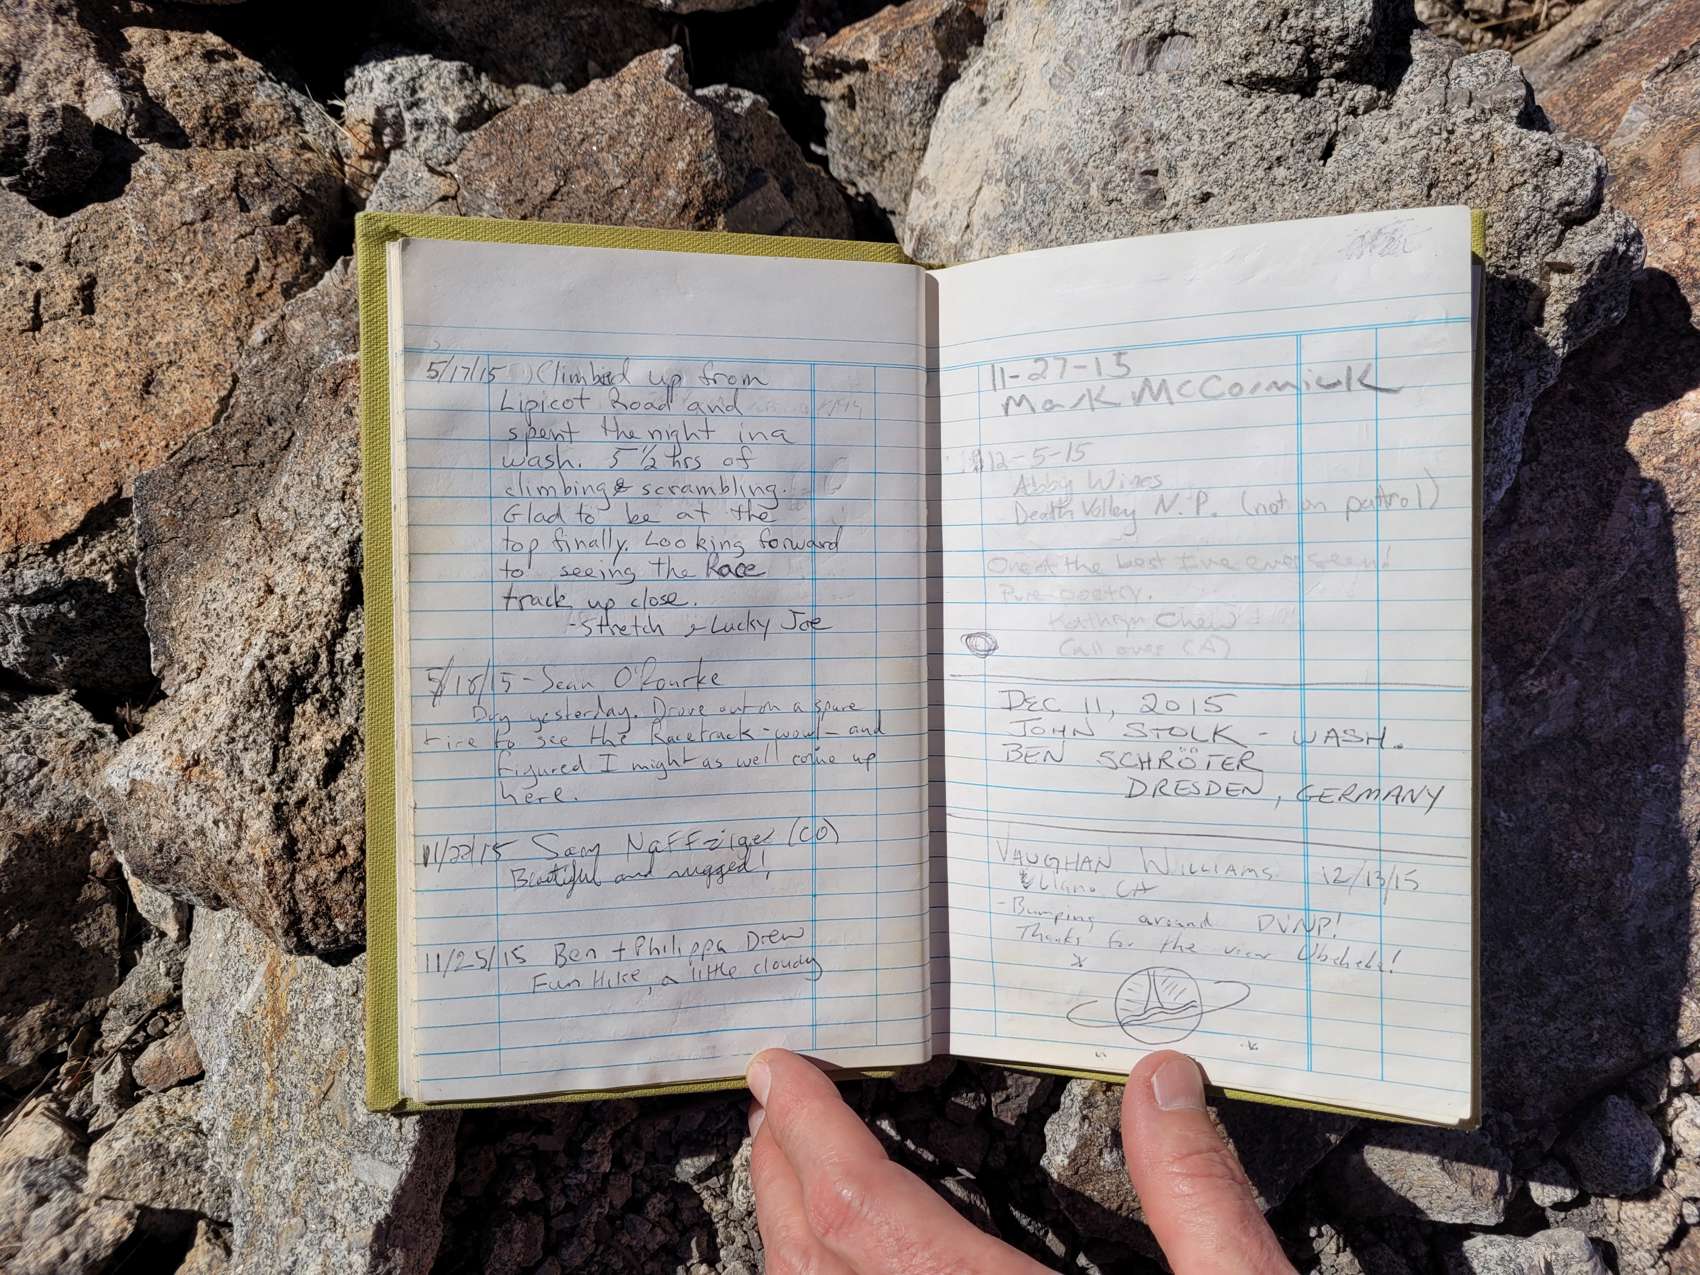 5/17/15 Climbed up from
Lipicot Road and
spent the night in a
wash. 5 1/2 hrs of
climbing & scrambling.
Glad to be at the
top finally. Looking forward
to seeing the Race
track up close.
- Stretch & Lucky Joe
5/18/15 - Sean O'Rourke
Day yesterday. Drove out on a spare
tire to see the Racetrack - wow! - and
figured I might as well come up
here.
11/22/15 Sam Naffziger (CO)
Beautiful and rugged!
11/25/15 Ben + Philippa Drew
Fun Hike, a little cloudy
11-27-15
Mark McCormick
12-5-15
Abby Wines
Death Valley N.P. (not on patrol)
One of the best I've ever seen!
Pure poetry.
Kathryn Chew
(all over CA)
DEC 11, 2015
JOHN STOLK - WASH.
BEN SCHRÖTER
DRESDEN, GERMANY
VAUGHAN WILLIAMS 12/13/15
Llano CA
- Bumping around DVNP!
Thanks for the view Ubehebe!